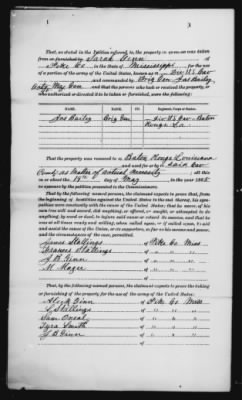 That, as stated in the Petition referred to, the property in question was taken
from or furnished by Sarah Ginn
of Pike Co in the State of Mississippi for the use
of a portion of the army of the United States, known as Div U.S. Cav
and commanded by Brig Gen Jas Bailey
and that the persons who took or received the property, or
who authorized or directed it to be taken or furnished, were the following:
NAME. RANK. Regiment, Corps or Station.
Jas Bailey Brig Gen Div U.S. Cav Baton
Rouge La
That the property was removed to Baton Rouge Louisiana
and used for or by said Cav
as matter of actual necessity, all this
on or about the day of May in the year 1865
as appears by the petition presented to the Commissioners.
By the following named persons, the claimant expects to prove that, from
the beginning of hostilities against the United States to the end thereof, his sym-
pathies were constantly with the cause of the United States; that he never, of his
own free will and accord, did anything, or offered, or sought, or attempted to do
anything, by word or deed, to injure said cause or retard its success, and that he
was at all times ready and willing, when called upon, or if called upon, to aid
and assist the cause of the Union, or its supporters, so far as his means and power,
and the circumstances of the case, permitted.
James Stallings of Pike Co Miss
Frances Stallings of " " "
J B Ginn of " " "
M. Magee of " " "
By the following named persons, the claimant expects to prove the taking
or furnishing of the property for the use of the army of the United States:
Aleck Ginn of Pike Co Miss
J Stallings of " " "
Sam Oneal of " " "
Tyra Smith of " " "
J B Ginn of " " "